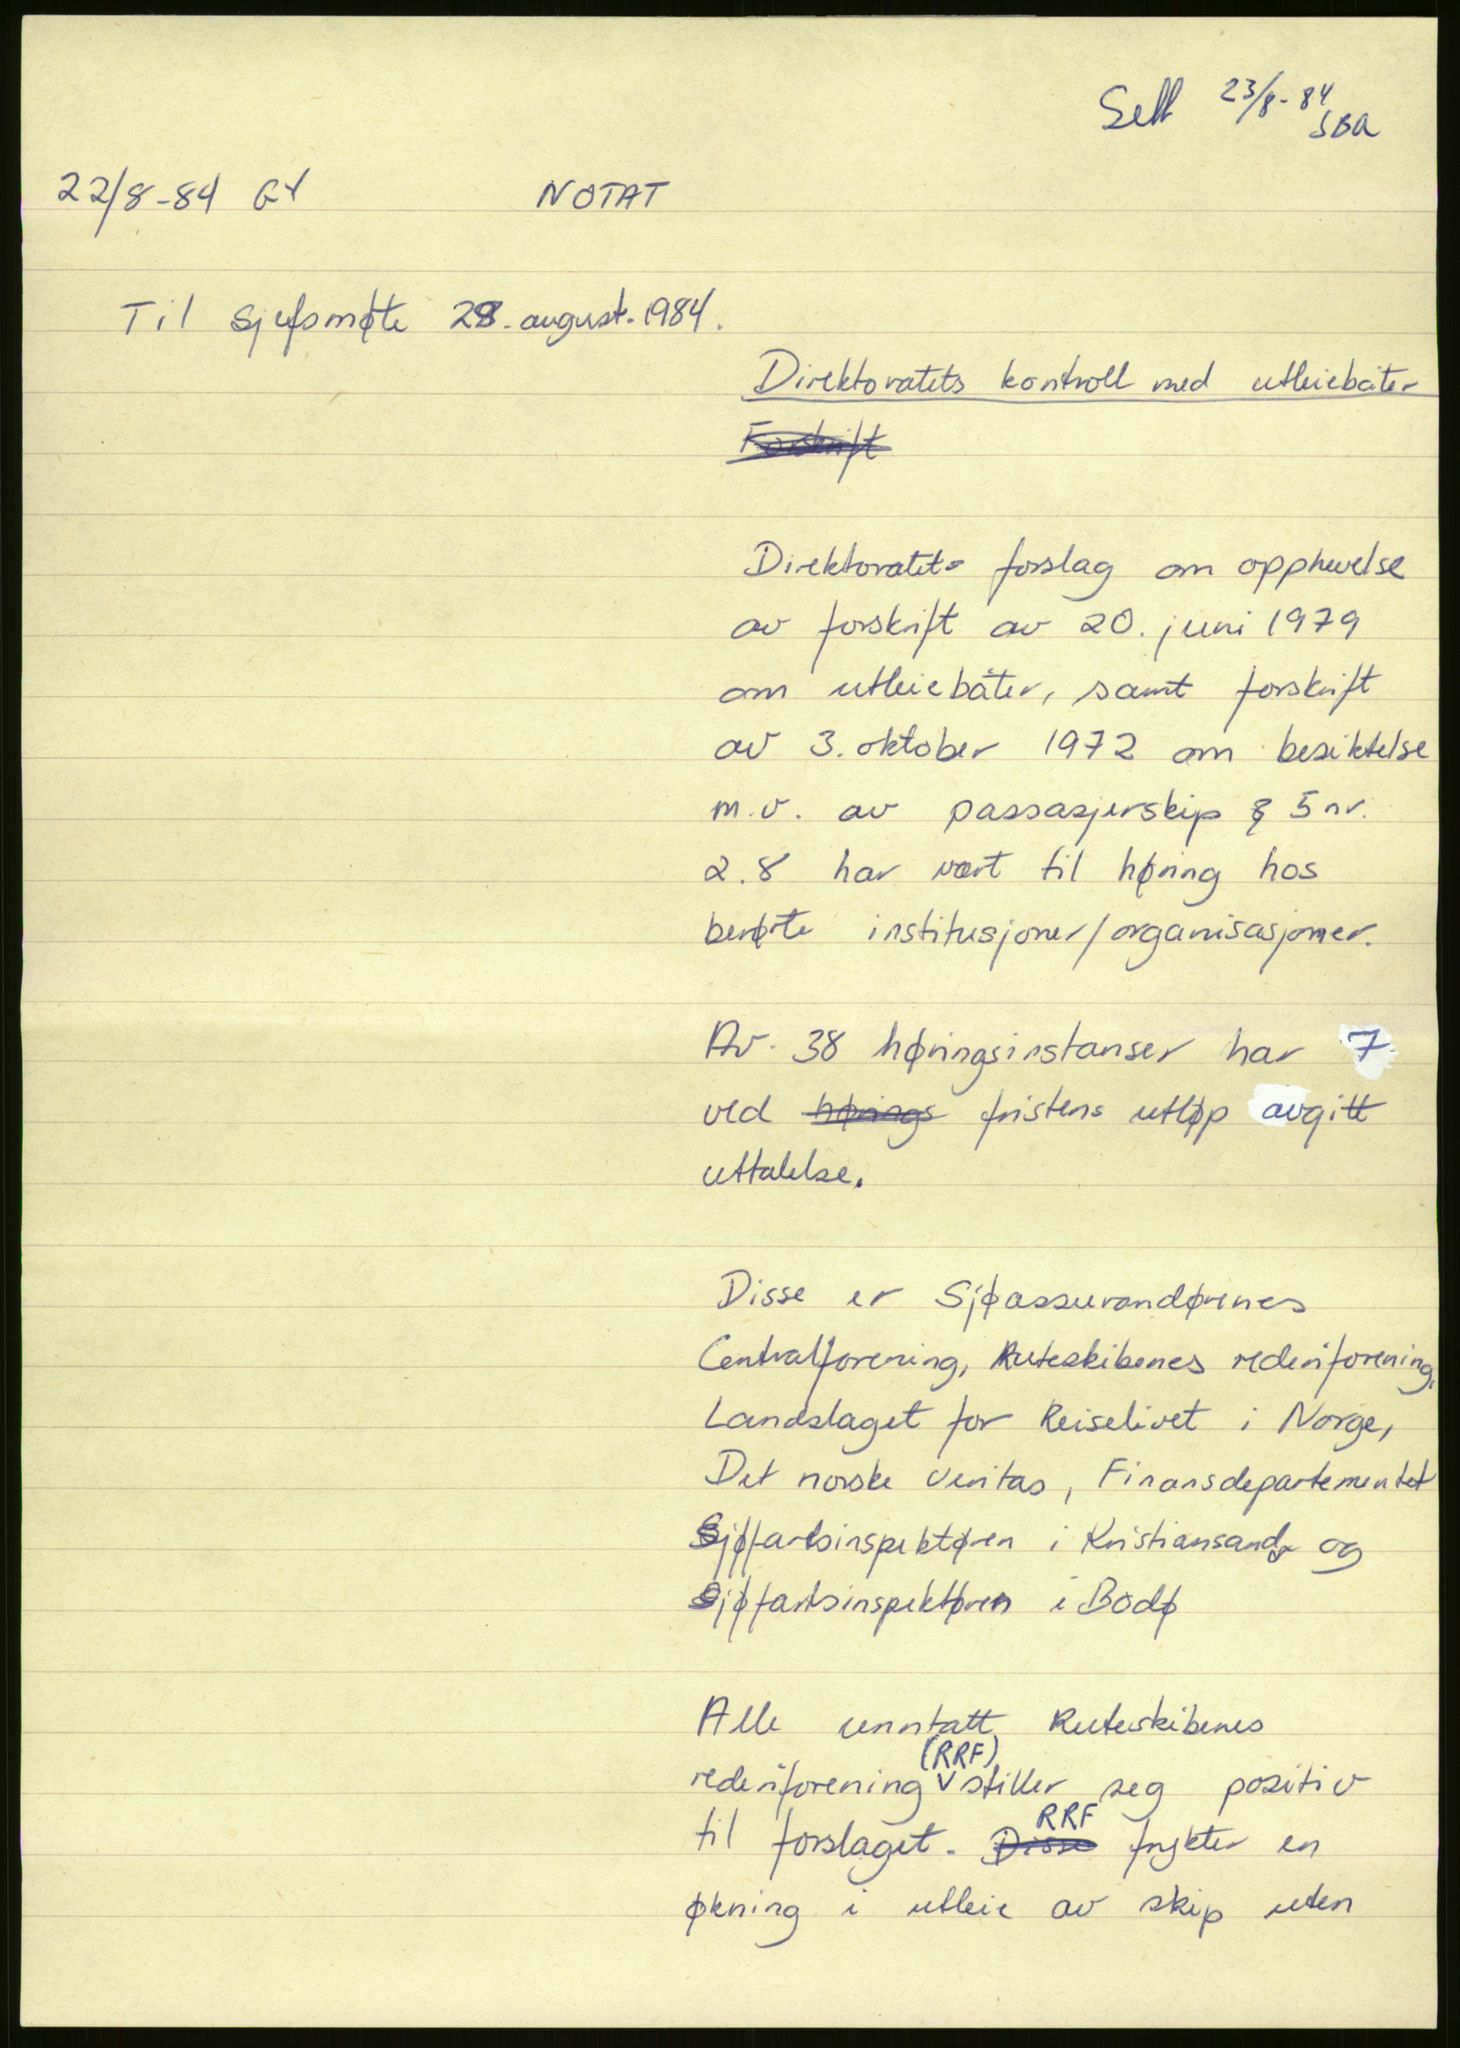 Sett 23/8-84
SBA
22/8-84 GY NOTAT
Til sjefsmøte 28. august. 1984.
Direktoratets kontroll med utleiebåter
Forskrift
Direktoratets forslag om opphevelse
av forskrift av 20. juni 1979
om utleiebåter, samt forskrift
av 3. oktober 1972 om besiktelse
m.v. av passasjerskip § 5 nr.
2.8 har vært til høring hos
berørte institusjoner/organisasjoner.
Av 38 høringsinstanser har 7
ved hørings fristens utløp avgitt
uttalelse.
Disse er Sjøassurandørenes
Centralforening, Ruteskibenes rederiforening,
Landslaget for Reiselivet i Norge,
Det norske Veritas, Finansdepartementet
Sjøfartsinspektøren i Kristiansand og
Sjøfartsinspektøren i Bodø
Alle unntatt Ruteskibenes
rederiforening (RRF) stiller seg positiv
til forslaget. Disse RRF frykter en
økning i utleie av skip uten